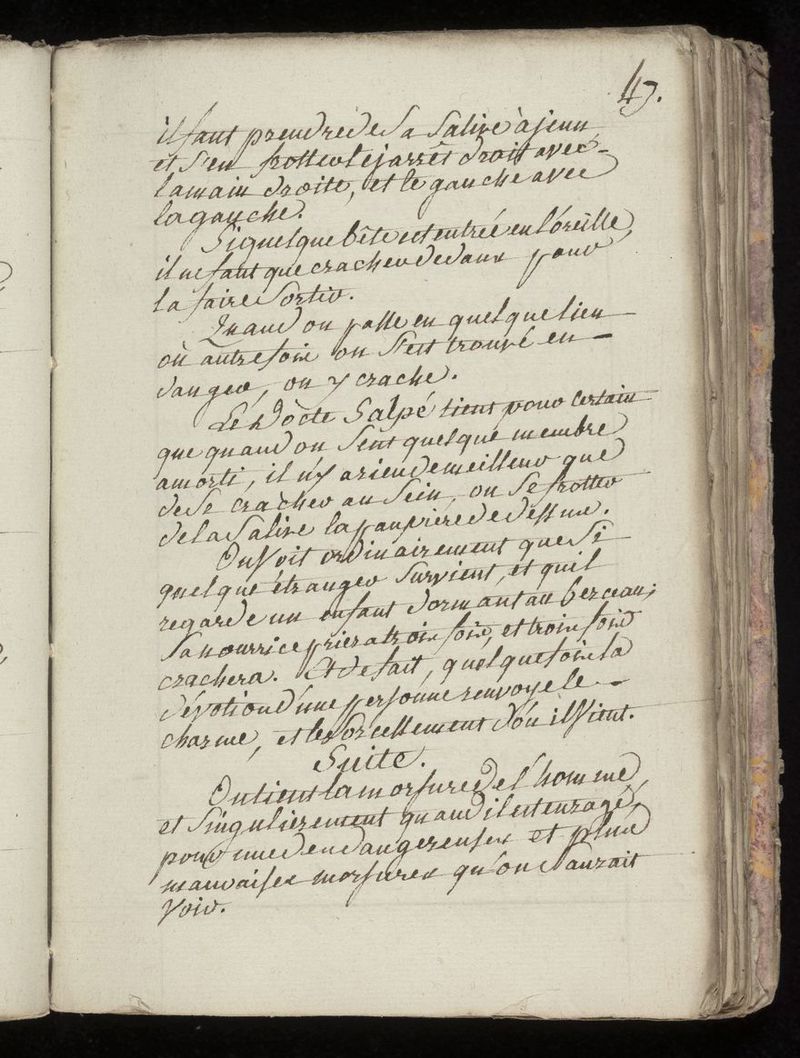 47.
il faut prendre de Sa Salive à jeun,
et S'en frotter le jarrêt droit avec
la main droite, et le gauche avec
la gauche.
Si quelque bête est entrée en l'oreille,
il ne faut que cracher dedans pour
la faire Sortir.
Quand on passe en quelque lieu
où autrefois on S'est trouvé en
danger, on y crache.
Le Docte Salpé tient pour certain
que quand on Sent quelque membre
amorti, il n'y a rien de meilleur que
de Se cracher au Sein, ou Se frotter
de la Salive la paupière de dessus.
On Voit ordinairement que Si
quelque étranger Survient, et qu'il
regarde un enfant dormant au berceau;
Sa nourrice priera trois fois, et trois fois
crachera. Et de fait, quelquefois la
dévotion d'une personne renvoye le
charme, et l'ensorcellement d'où il Vient.
Suite.
On tient la morsure de l'homme,
et Singulièrement quand il est enragé,
pour une des dangereuses et plus
mauvaises morsures qu'on Saurait
Voir.